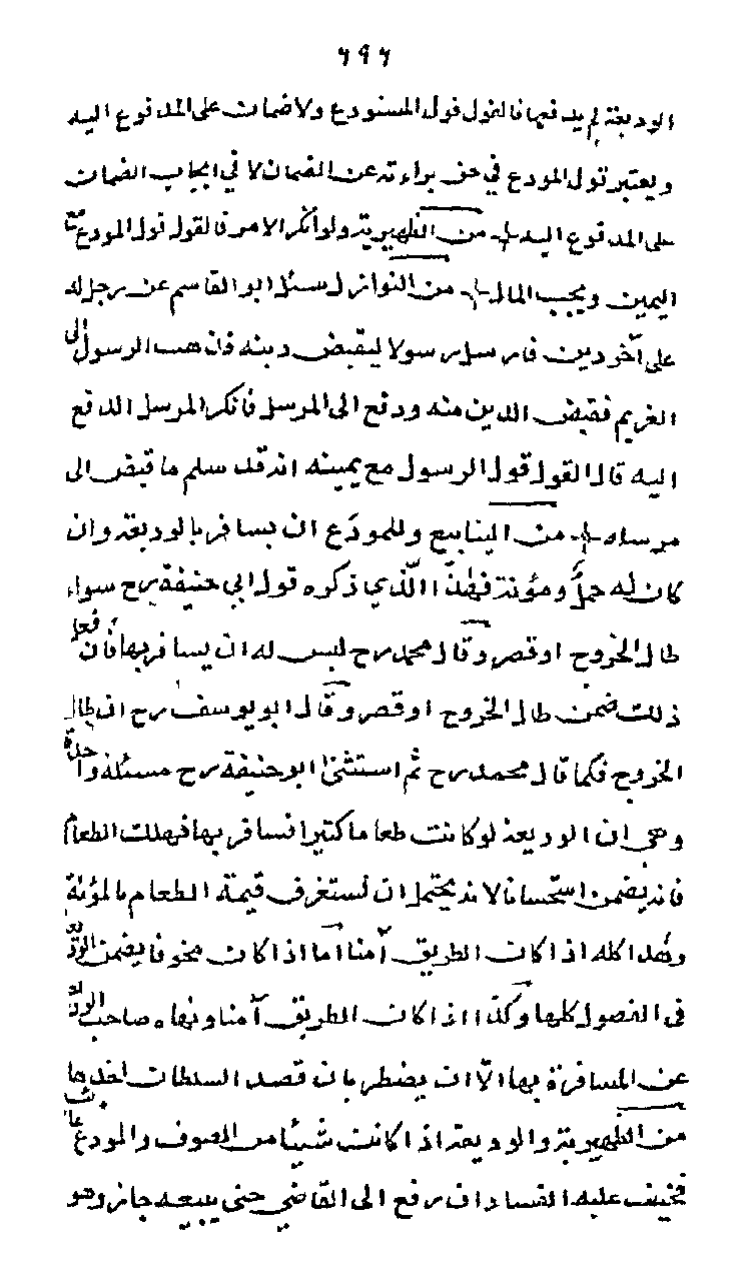 ٦٩٦
الوديعة لم يدفعها فالقول قول المستودع ولا ضمان على المدفوع اليه
ويعتبر قول المودع في حق براءته عن الضمان لا في ايجاب الضمان
على المدفوع اليه من الظهيرية ولو انكر الامر فالقول قول المودع مع
اليمين ويجب المال من النوازل سئل ابو القاسم عن رجل له
على آخر دين فارسل رسولا ليقبض دينه فذهب الرسول الى
الغريم فقبض الدين منه ودفع الى المرسل فانكر المرسل الدفع
اليه قال القول قول الرسول مع يمينه انه قد سلم ما قبض الى
مرسله من الينابيع وللمودَع ان يسافر بالوديعة وان
كان له حمل ومؤنة فهذا الذي ذكره قول ابي حنيفة رح سواء
طال الخروج او قصر وقال محمد رح ليس له ان يسافر بها فان فعل
ذلك ضمن طال الخروج او قصر وقال ابو يوسف رح ان طال
الخروج فكما قال محمد رح ثم استثنى ابو حنيفة رح مسئلة واحدة
وهي ان الوديعة لو كانت طعاما كثيرا فسافر بها فهلك الطعام
فانه يضمن استحسانا لانه يحتمل ان تستغرق قيمة الطعام بالمؤنة
وهذا كله اذا كان الطريق آمنا اما اذا كان مخوفا يضمن
في الفصول كلها وكذا اذا كان الطريق آمنا ونهاه صاحب
عن المسافرة بها الّا ان يضطر بان قصد السلطان اخذها
من الظهيرية والوديعة اذا كانت شيئا من الصوف والمودع غائب
فخيف عليه الفساد ان رفع الى القاضي حتى يبيعه جاز وهو